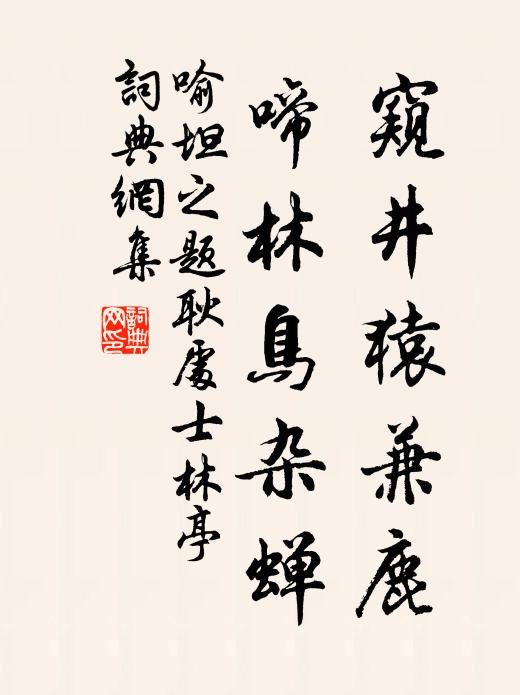 窺井猿兼鹿
啼林鳥杂蝉
喻坦之题耿處士林亭
詞典網集
詞典
网印